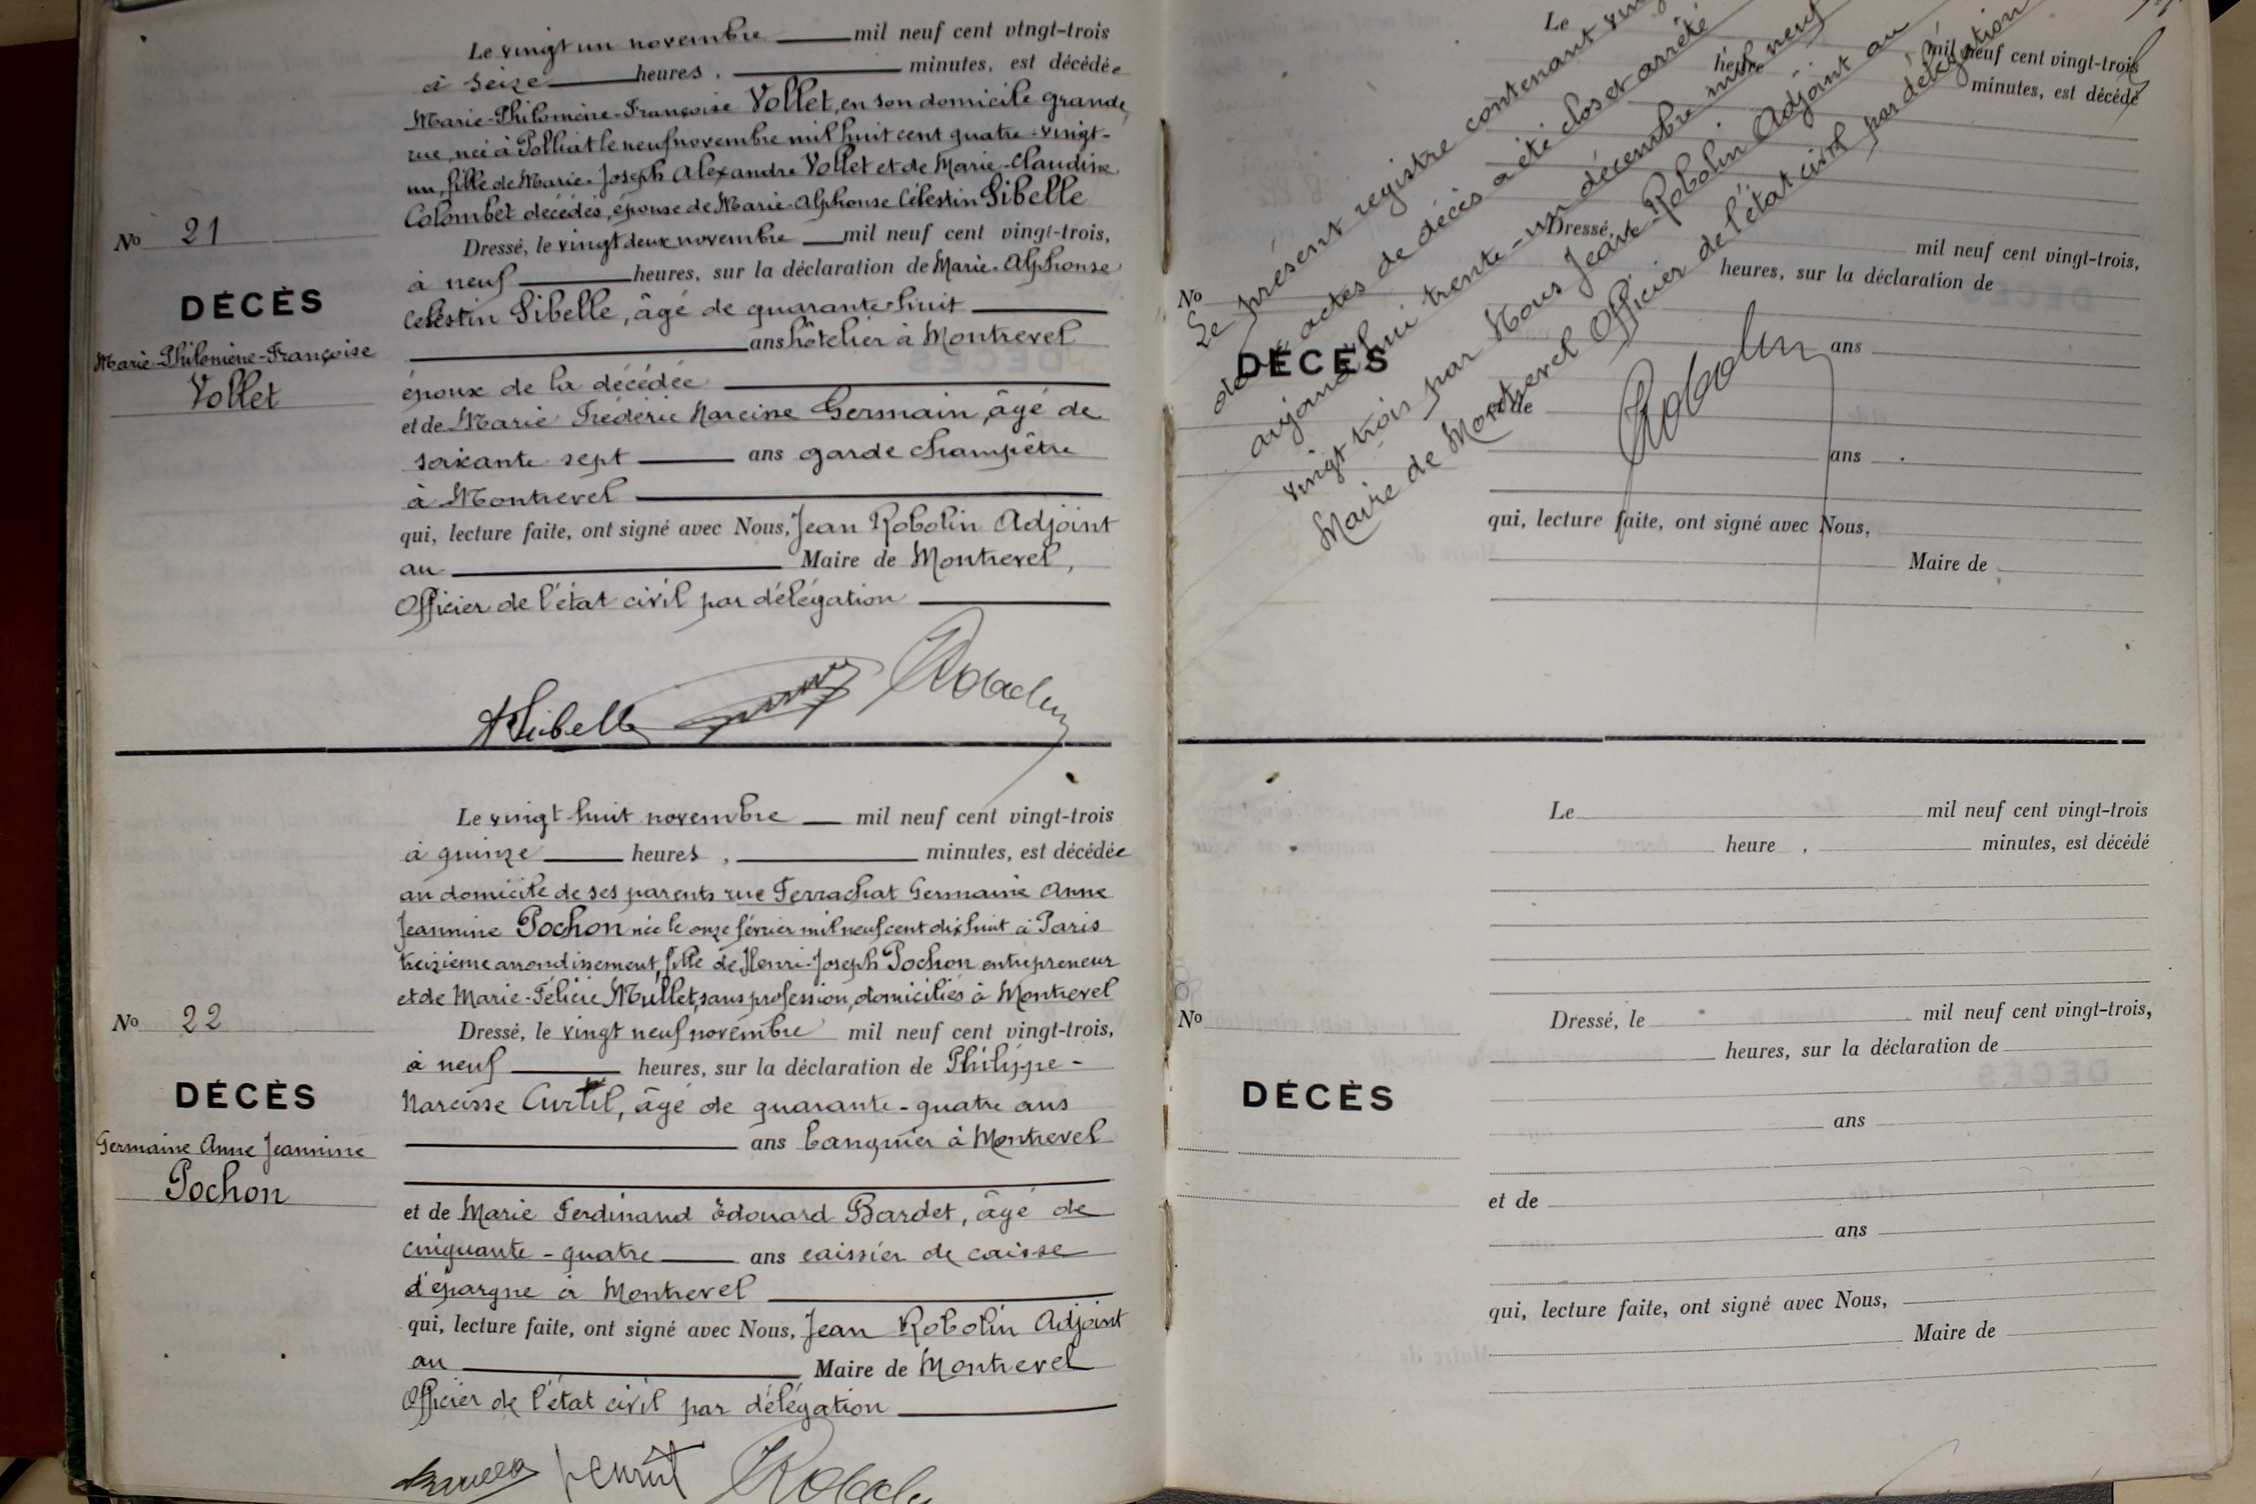 Le vingt un novembre mil neuf cent vingt-trois
à seize heures, minutes, est décédée
Marie-Philomène-Françoise Vollet, en son domicile grande
rue, née à Polliat le neuf novembre mil huit cent quatre-vingt-
un, fille de Marie-Joseph Alexandre Vollet et de Marie-Claudine
Colombet décédés, épouse de Marie-Alphonse Célestin Sibelle
No 21
Dressé, le vingt deux novembre mil neuf cent vingt-trois,
à neuf heures, sur la déclaration de Marie-Alphonse
DÉCÈS
Célestin Sibelle, âgé de quarante huit
Marie-Philomène-Françoise
Vollet
ans hôtelier à Montrevel
époux de la décédée
et de Marie Frédéric Narcisse Germain, âgé de
soixante sept ans garde champêtre
à Montrevel
qui, lecture faite, ont signé avec Nous, Jean Robolin Adjoint
au Maire de Montrevel,
Officier de l'état civil par délégation
A Sibelle Robolin
Le vingt-huit novembre mil neuf cent vingt-trois
à quinze heures, minutes, est décédée
au domicile de ses parents rue Ferrachat Germaine Anne
Jeannine Pochon née le onze février mil neuf cent dix huit à Paris
treizième arrondissement, fille de Henri-Joseph Pochon entrepreneur
et de Marie-Félicie Mullet, sans profession, domiciliés à Montrevel
No 22
Dressé, le vingt neuf novembre mil neuf cent vingt-trois,
à neuf heures, sur la déclaration de Philippe-
DÉCÈS
Narcisse Curtil, âgé de quarante-quatre ans
Germaine Anne Jeannine
Pochon
ans banquier à Montrevel
et de Marie Ferdinand Édouard Bardet, âgé de
cinquante-quatre ans caissier de caisse
d'épargne à Montrevel
qui, lecture faite, ont signé avec Nous, Jean Robolin Adjoint
au Maire de Montrevel
Officier de l'état civil par délégation
Robolin
Le mil neuf cent vingt-trois
heure minutes, est décédé
Le présent registre contenant
actes de décès a été clos et arrêté
aujourd'hui trente-un décembre mil neuf
vingt trois par Nous Jean Robolin Adjoint au
Maire de Montrevel Officier de l'état civil par délégation
Robolin
Dressé, mil neuf cent vingt-trois,
heures, sur la déclaration de
No
DÉCÈS
ans
et de
ans
qui, lecture faite, ont signé avec Nous,
Maire de
Le mil neuf cent vingt-trois
heure , minutes, est décédé
No
Dressé, le mil neuf cent vingt-trois,
heures, sur la déclaration de
DÉCÈS
ans
et de
ans
qui, lecture faite, ont signé avec Nous,
Maire de